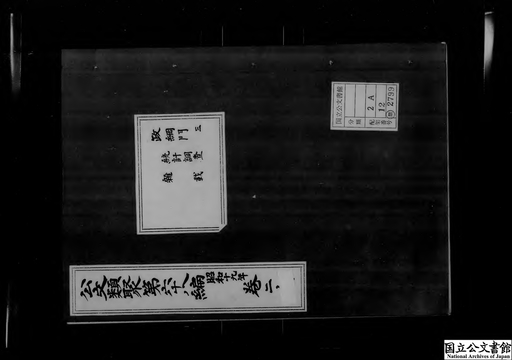 公文類聚第六十八編昭和十九年巻二
政綱門 三
統計調査
雜載
国立公文書館
分類
配架番号
2 A
12
類 2799
国立公文書館
National Archives of Japan